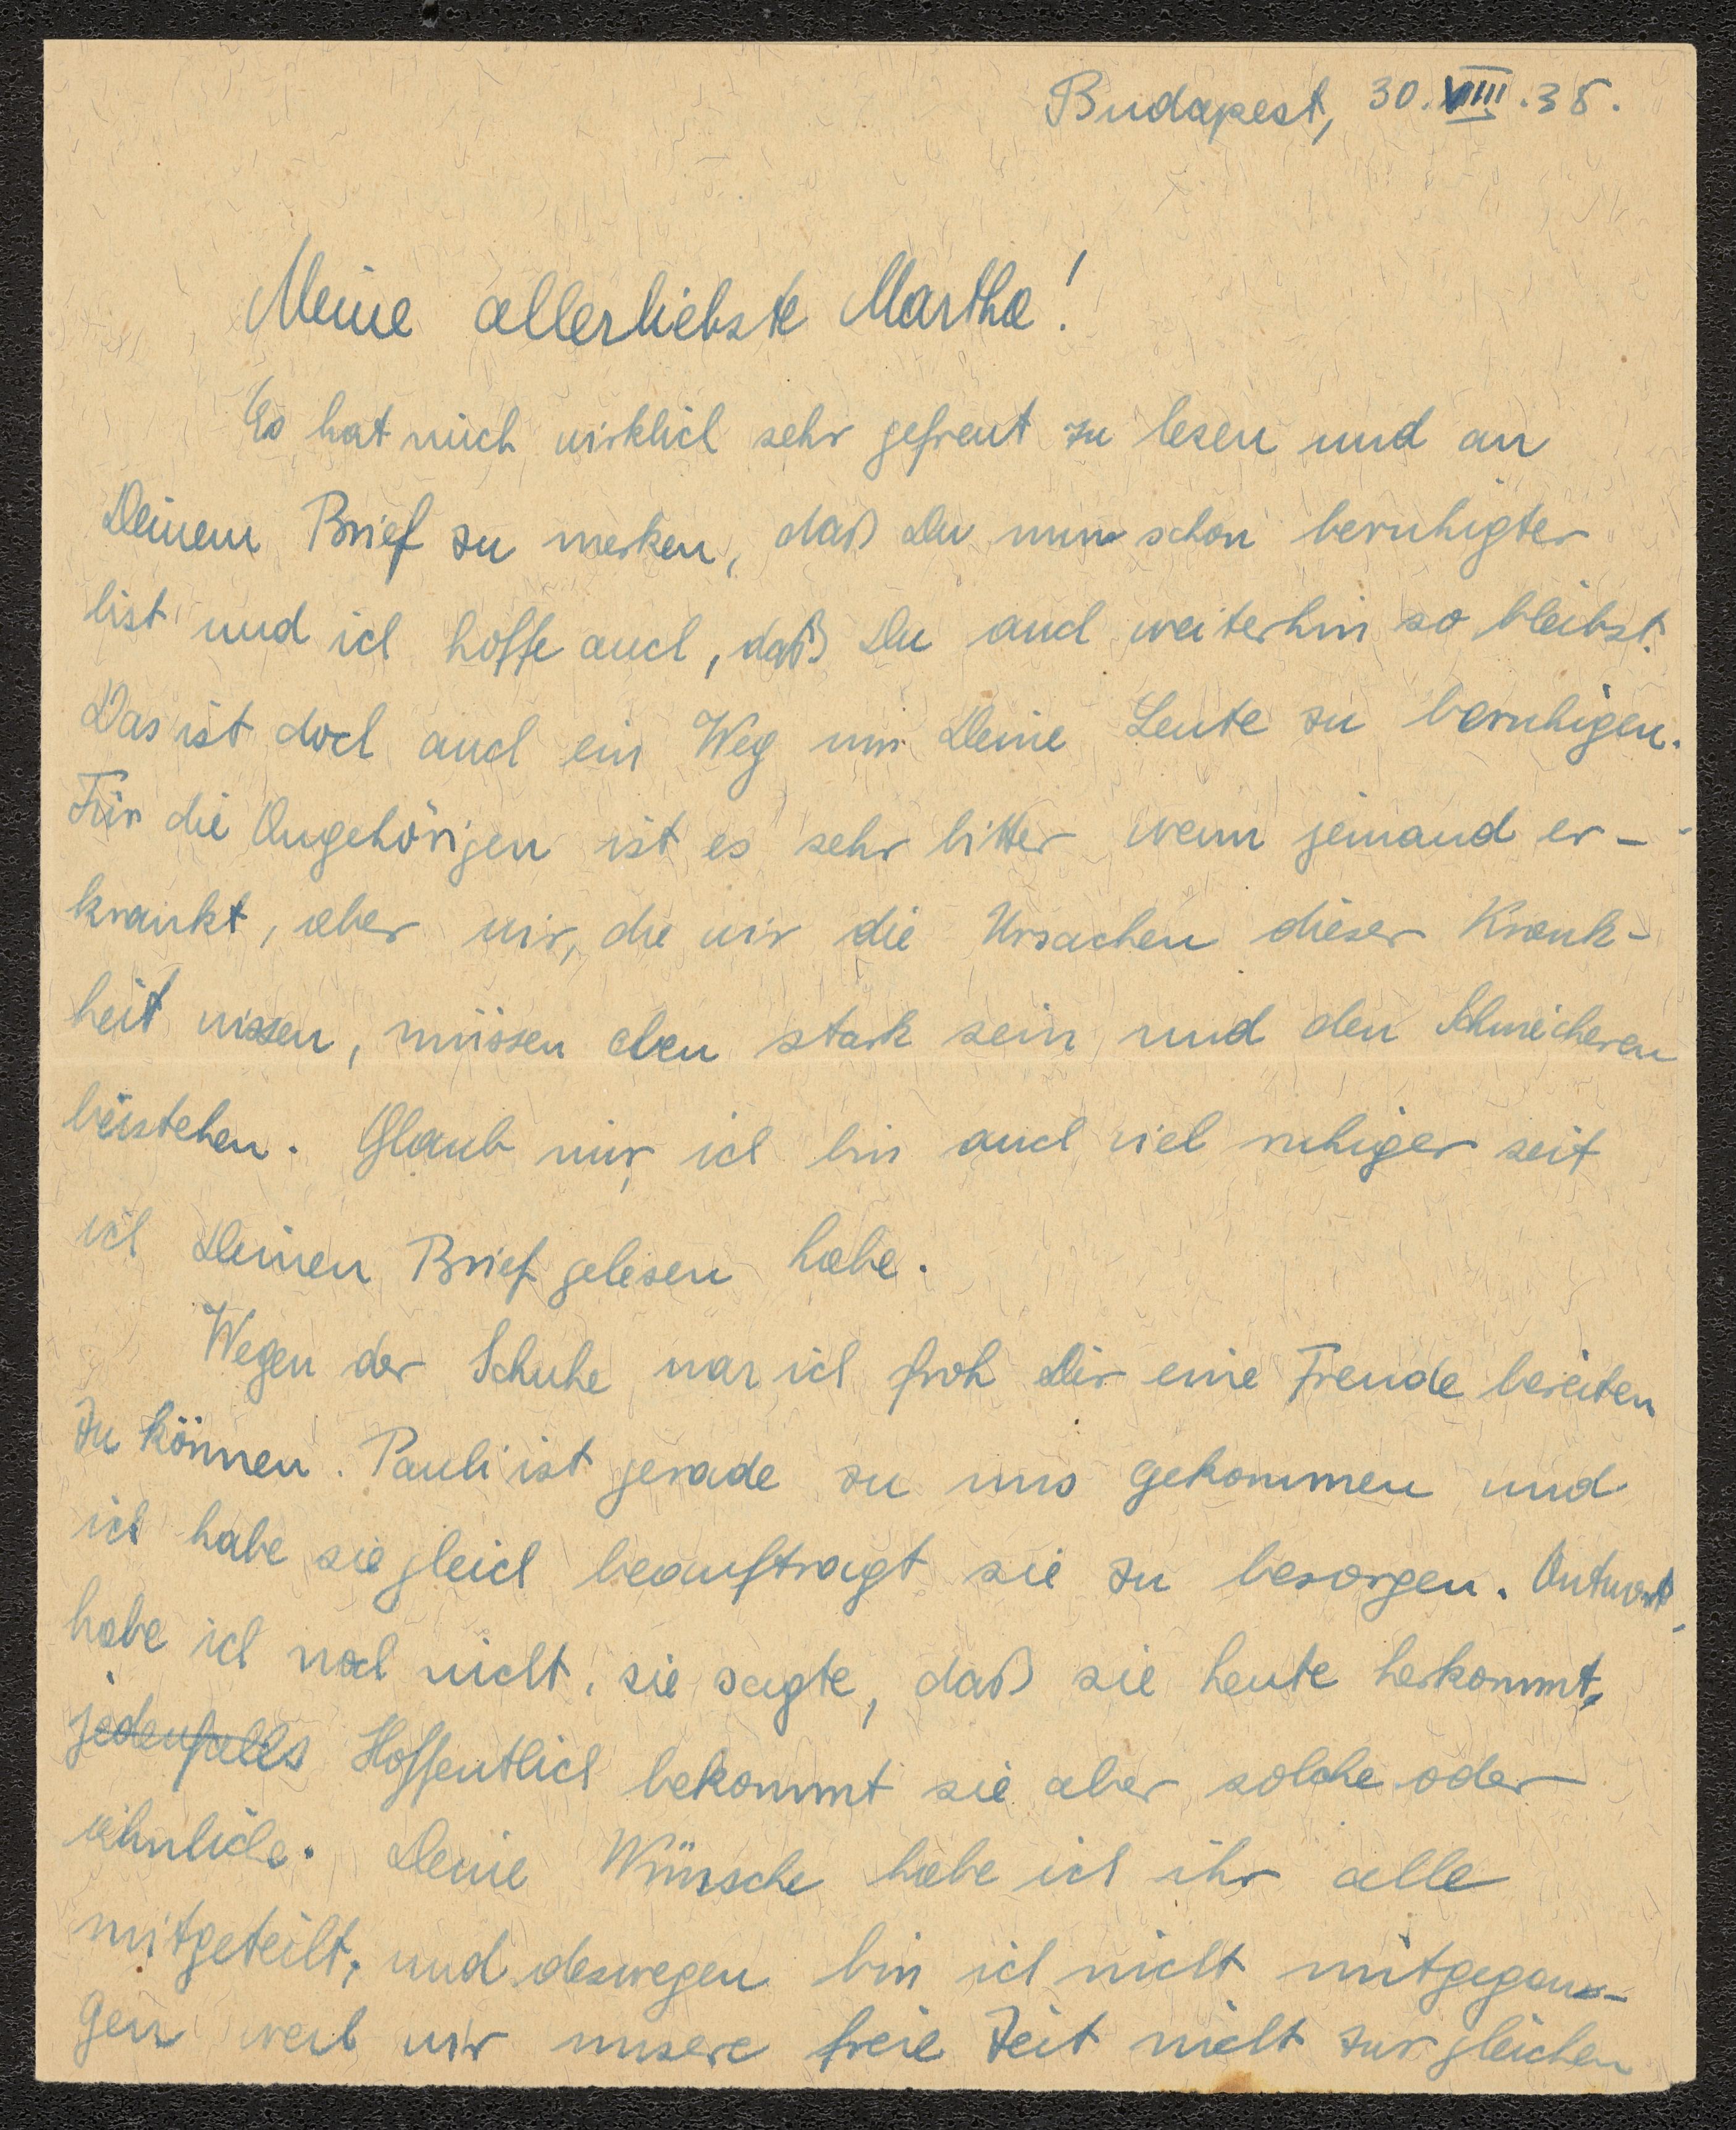 Budapest, 30. VIII. 38.
Meine allerliebste Martha!
Es hat mich wirklich sehr gefreut zu lesen und an
Deinem Brief zu merken, daß Du nun schon beruhigter
bist und ich hoffe auch, daß Du auch weiterhin so bleibst.
Das ist doch auch ein Weg um Deine Leute zu beruhigen.
Für die Angehörigen ist es sehr bitter wenn jemand er-
krankt, aber wir, die wir die Ursachen dieser Krank-
heit wissen, müssen eben stark sein und den Schwächeren
beistehen. Glaub mir, ich bin auch viel ruhiger seit
ich Deinen Brief gelesen habe.
Wegen der Schuhe war ich froh Dir eine Freude bereiten
zu können. Pauli ist gerade zu uns gekommen und
ich habe sie gleich beauftragt sie zu besorgen. Antwort
habe ich noch nicht, sie sagte, daß sie heute herkommt,
jedenfalls Hoffentlich bekommt sie aber solche oder
ähnliche. Deine Wünsche habe ich ihr alle
mitgeteilt, und deswegen bin ich nicht mitgegan-
gen weil wir unsere freie Zeit nicht zur gleichen